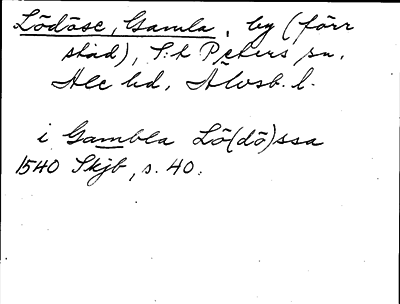 Lödöse, Gamla, by (förr
stad), S:t Peters sn.
Ale hd, Älvsb. l.
i Gambla Lö(dö)ssa
1540 Skjb, s. 40.